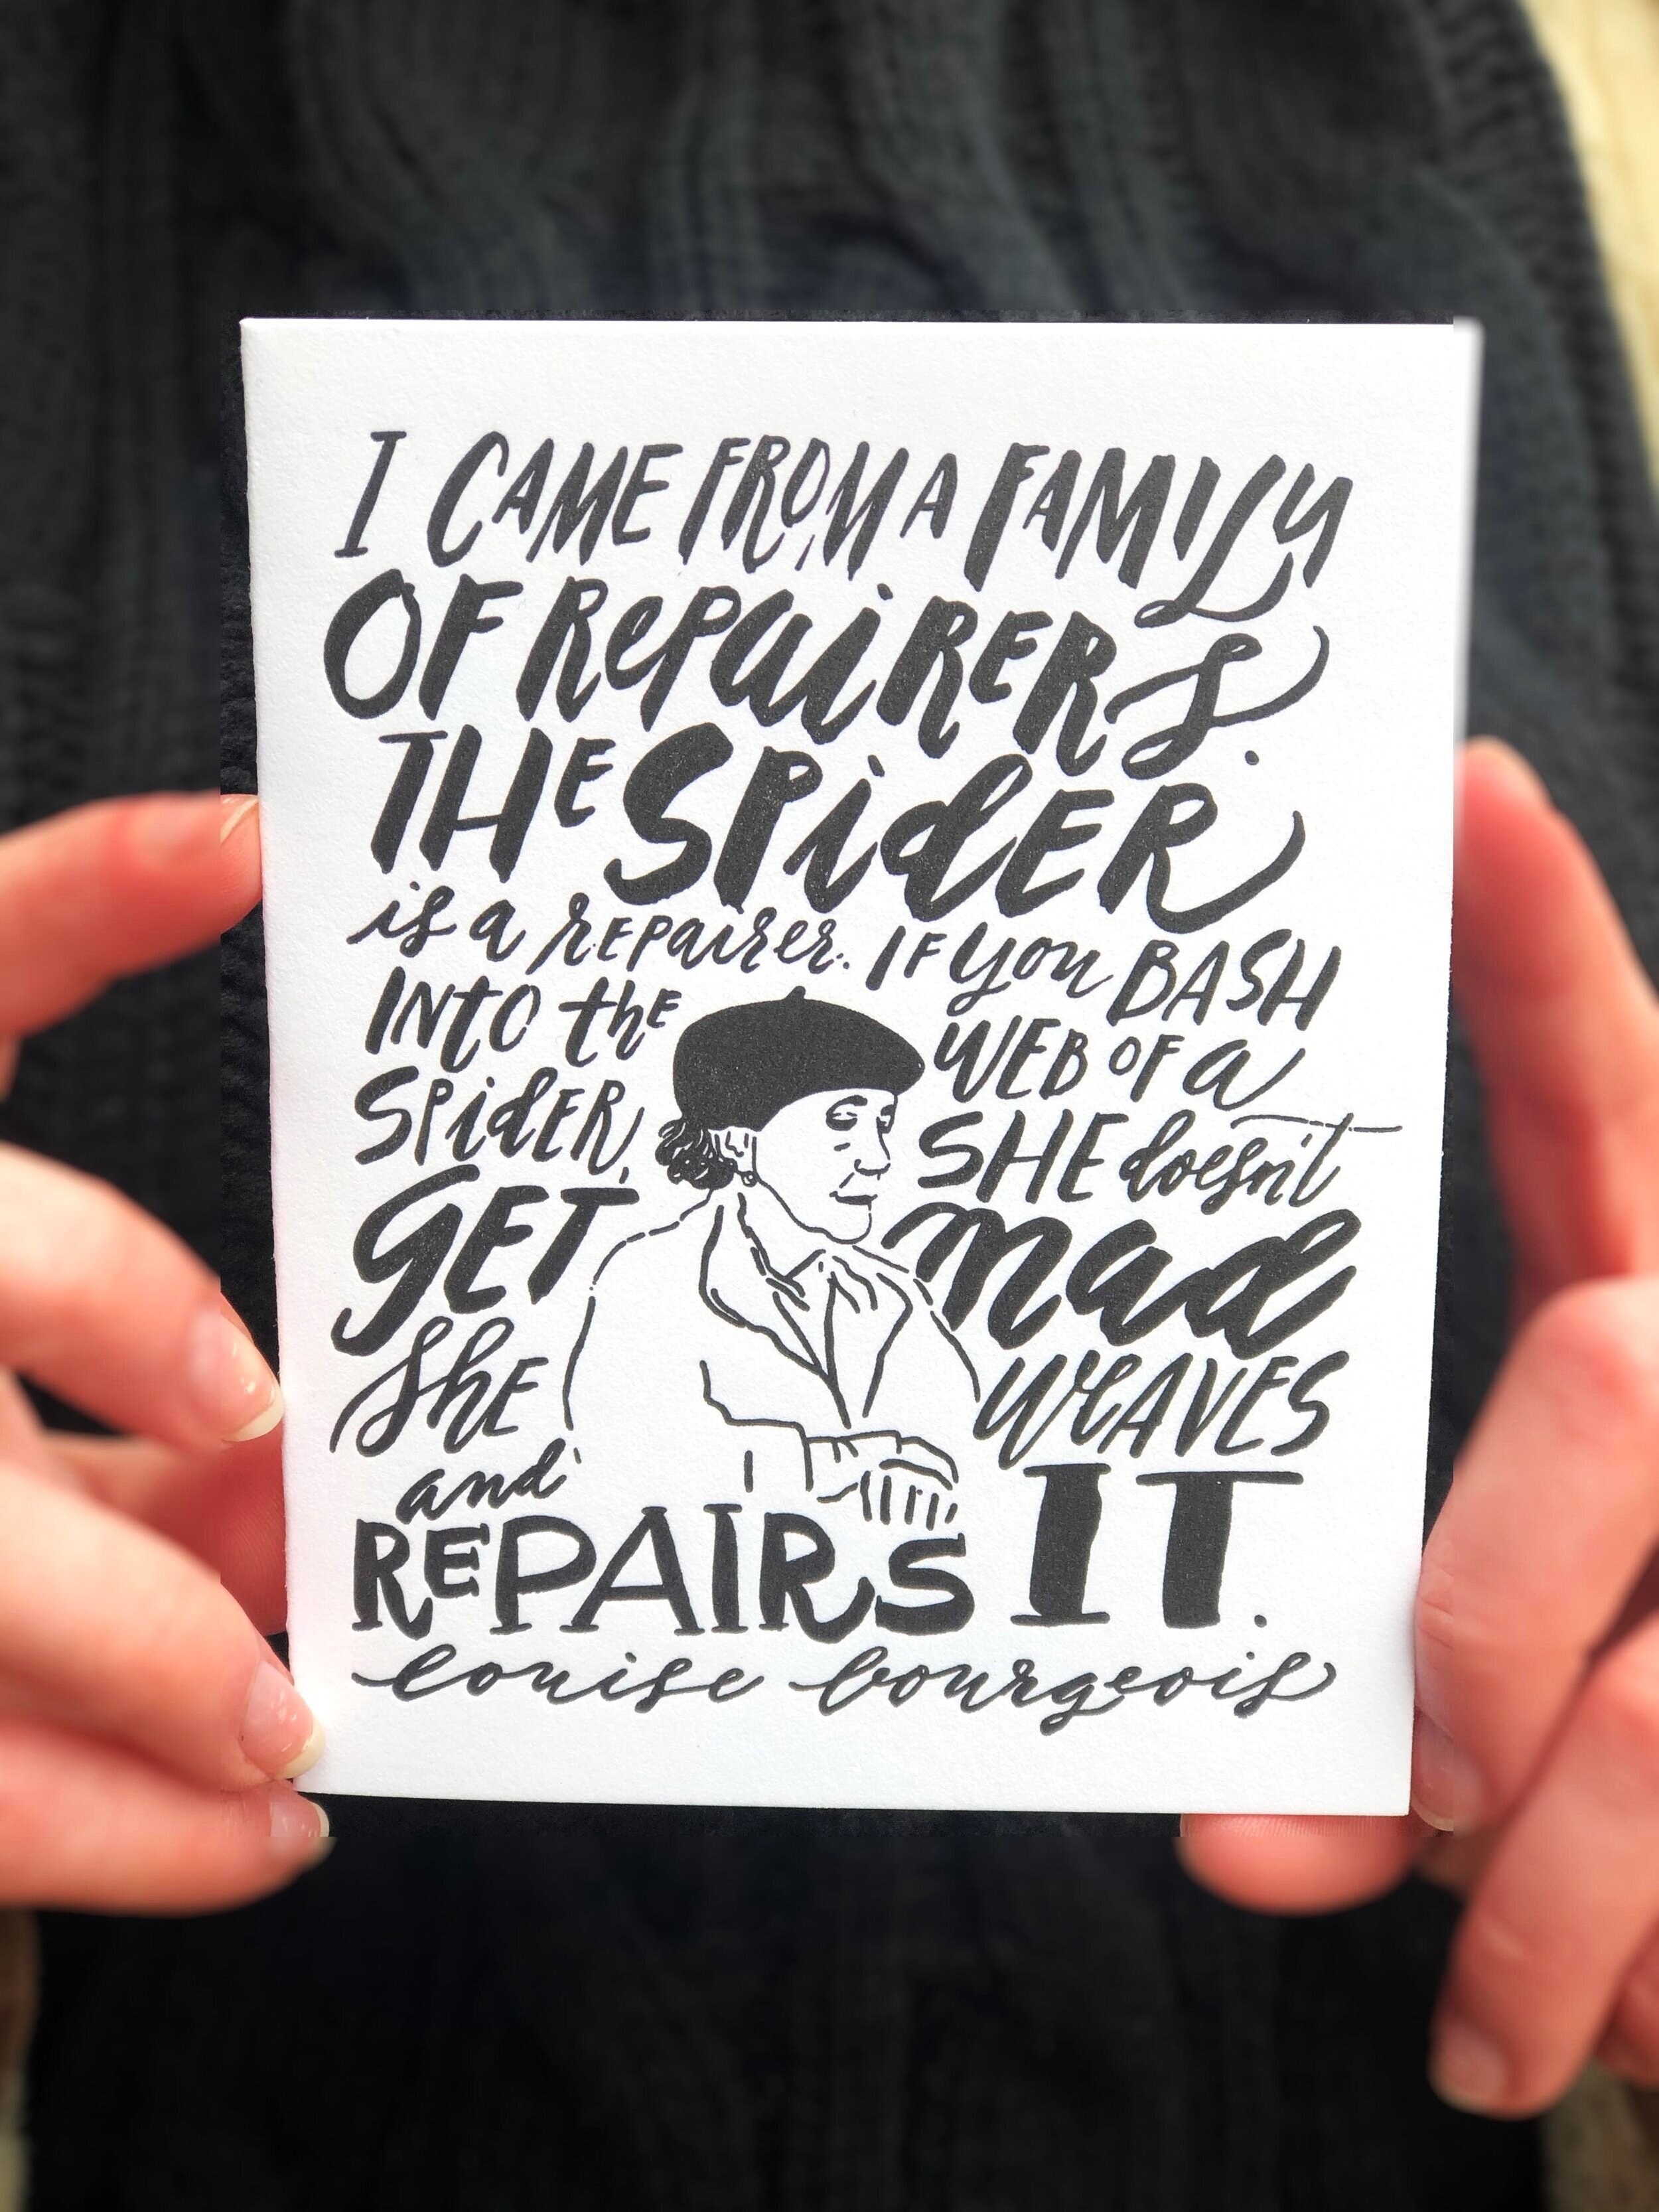 I CAME FROM A FAMILY
OF REPAIRERS.
THE SPIDER
is a REPAIRER. IF you BASH
INTO the WEB OF a
SPIDER, SHE doesn't
GET mad
She WEAVES
and
REPAIRS IT.
louise bourgeois